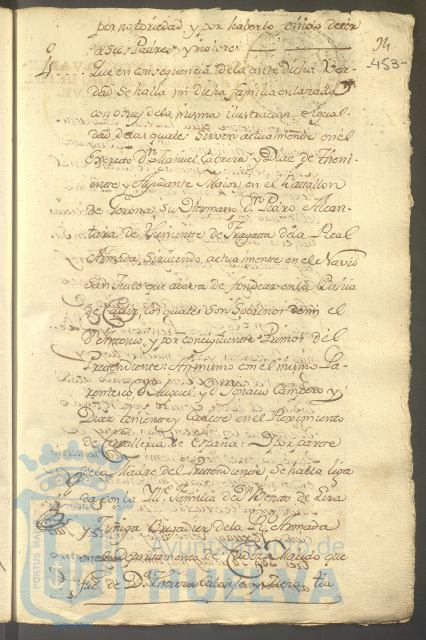 por notoriedad, y por haberlo oido decir
a sus Padres y maiores
94
-453-
4º Que en consequencia de la ante dicha Ver-
dad se halla mi dicha familia enlazada
con otras de la misma ilustracion, e igual-
dad de las quales sirven actualmente en el
Exercito Dn Manuel Cabrera y Diaz de Theni-
ente y Ayudante Maior en el Batallon
de Gerona, su Hermano Dn Pedro Alcan-
tara de Theniente de Fragata de la Real
Armada, sirviendo actualmente en el Navio
San Justo que acava de fondear en la Bahia
de Cadiz, los quales son Sobrinos de mi el
Dn Antonio, y por consiguiente Primos del
Pretendiente: Asimismo con el mismo Pa-
rentesco, Dn Miguel, y Dn Ignacio Campero y
Diaz Teniente y Cadete en el Regimiento
de Cavalleria de España: Por parte
de la Madre del Pretendiente se halla liga-
da con la Familia de Dn Benito de Lira
y Zuñiga Brigadier de la Rl Armada
en el Departamento Cadiz Marido que
fue de Da Theresa y tia
PORTUS MA
Ayuntamiento de
HUELVA